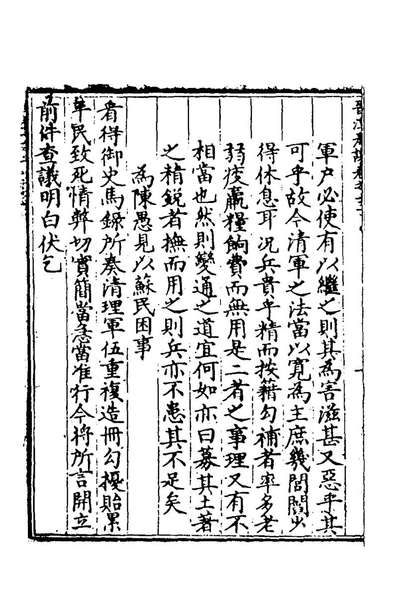 軍户必使有以繼之則其為害滋甚又惡乎其
可乎故今清軍之法當以寬為主庶幾閭閻少
得休息耳况兵貴乎精而按籍勾補者率多老
弱疲羸糧餉費而無用是二者之事理又有不
相當也然則變通之道宜何如亦曰募其土著
之精鋭者撫而用之則兵亦不患其不足矣
為陳愚見以蘇民困事
看得御史馬錄所奏清理軍伍重複造冊勾擾貽累
軍民致死情弊切實簡當急當准行今將所言開立
前件查議明白伏乞